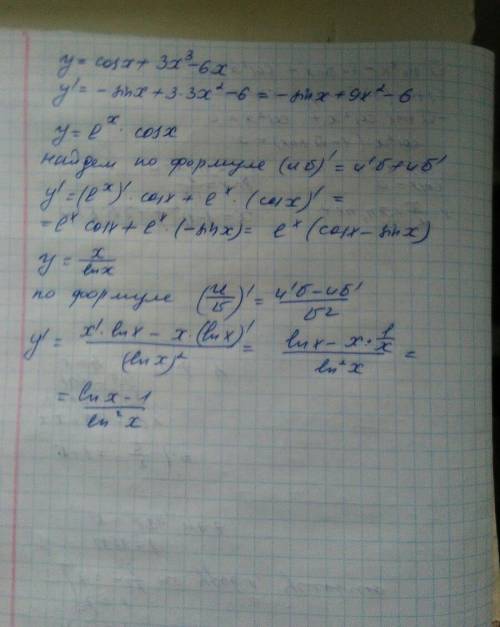 y = cosx + 3x³ - 6x
y' = - sinx + 3·3x² - 6 = - sinx + 9x² - 6
y = eˣ · cosx
найдем по формуле (uv)' = u'v + uv'
y' = (eˣ)' · cosx + eˣ · (cosx)' =
= eˣ cosx + eˣ · (-sinx) = eˣ (cosx - sinx)
y = x/lnx
по формуле (u/v)' = (u'v - uv')/v²
y' = (x' · lnx - x · (lnx)')/(lnx)² = (lnx - x · 1/x)/ln²x =
= (lnx - 1)/ln²x